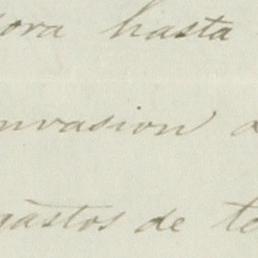 ora hasta
nvasion
gastos de te